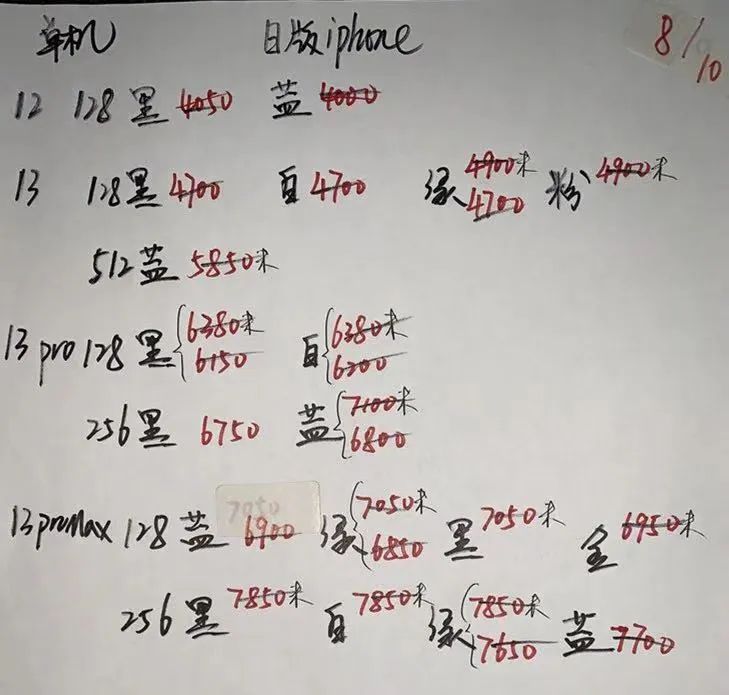 单机 日版iphone 8/10
12 128黑 4050 盖 4000
13 128黑 4700 白 4700 绿 4900未 4700 粉 4900未
512盖 5850未
13 pro 128黑 6380未 6150 白 6380未 6200
256黑 6750 盖 7100未 6800
13 promax 128盖 7050 6900 绿 7050未 6850 黑 7050未 金 6950未
256黑 7850未 白 7850未 绿 7850未 7650 盖 7700